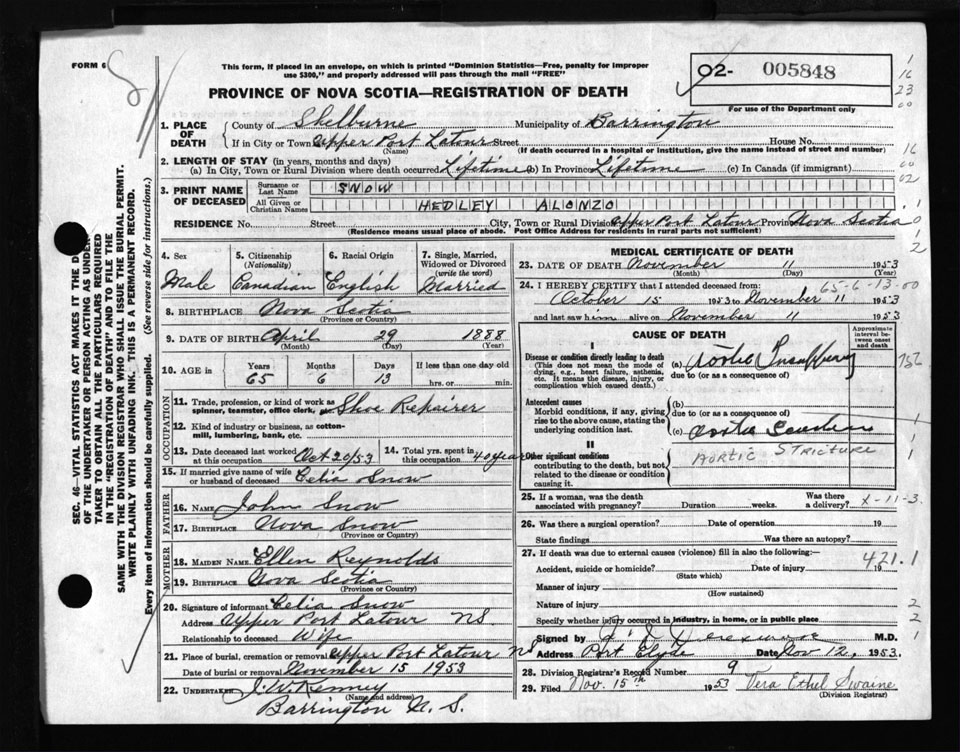 FORM 6
This form, if placed in an envelope, on which is printed "Dominion Statistics—Free, penalty for improper
use $300," and properly addressed will pass through the mail "FREE"
O2- 005848
For use of the Department only
1
16
23
00
PROVINCE OF NOVA SCOTIA—REGISTRATION OF DEATH
1. PLACE OF DEATH County of Shelburne Municipality of Barrington
If in City or Town Upper Port Latour Street House No.
(Name) (If death occurred in a hospital or institution, give the name instead of street and number)
16
00
02
2. LENGTH OF STAY (in years, months and days)
(a) In City, Town or Rural Division where death occurred Lifetime (b) In Province Lifetime (c) In Canada (if immigrant)
3. PRINT NAME OF DECEASED
Surname or Last Name SNOW
All Given or Christian Names HEDLEY ALONZO
RESIDENCE No. Street City, Town or Rural Division Upper Port Latour Province Nova Scotia
(Residence means usual place of abode. Post Office Address for residents in rural parts not sufficient)
1
0
1
2
SEC. 46—VITAL STATISTICS ACT MAKES IT THE
OF THE UNDERTAKER OR PERSON ACTING AS UNDER
TAKER TO OBTAIN ALL THE PARTICULARS REQUIRED
IN THE "REGISTRATION OF DEATH" AND TO FILE THE
SAME WITH THE DIVISION REGISTRAR WHO SHALL ISSUE THE BURIAL PERMIT.
WRITE PLAINLY WITH UNFADING INK. THIS IS A PERMANENT RECORD.
Every item of information should be carefully supplied. (See reverse side for instructions.)
4. Sex 5. Citizenship (Nationality) 6. Racial Origin 7. Single, Married, Widowed or Divorced (write the word)
Male Canadian English Married
8. BIRTHPLACE Nova Scotia
(Province or Country)
9. DATE OF BIRTH April 29 1888
(Month) (Day) (Year)
10. AGE in Years Months Days If less than one day old
65 6 13 hrs. or min.
OCCUPATION
11. Trade, profession or kind of work as
spinner, teamster, office clerk, etc. Shoe Repairer
12. Kind of industry or business, as cotton-
mill, lumbering, bank, etc.
13. Date deceased last worked at this occupation Oct 20/53 14. Total yrs. spent in this occupation 40 years
15. If married give name of wife
or husband of deceased Celia Snow
FATHER
16. Name John Snow
17. Birthplace Nova Snow
(Province or Country)
MOTHER
18. Maiden Name Ellen Reynolds
19. Birthplace Nova Scotia
(Province or Country)
20. Signature of informant Celia Snow
Address Upper Port Latour NS
Relationship to deceased Wife
21. Place of burial, cremation or removal Upper Port Latour N
Date of burial or removal November 15 1953
22. UNDERTAKER J. W. Kenney
(Name and address)
Barrington N. S.
MEDICAL CERTIFICATE OF DEATH
23. DATE OF DEATH November 11 1953
(Month) (Day) (Year)
65-6-13-00
24. I HEREBY CERTIFY that I attended deceased from:
October 15 1953 to November 11 1953
and last saw him alive on November 11 1953
CAUSE OF DEATH
Approximate interval between onset and death
I
Disease or condition directly leading to death
(This does not mean the mode of
dying, e.g., heart failure, asthenia,
etc. It means the disease, injury, or
complication which caused death.)
(a) Aortic
due to (or as a consequence of)
Antecedent causes
Morbid conditions, if any, giving
rise to the above cause, stating the
underlying condition last.
(b)
due to (or as a consequence of)
(c) Aortic
II
Other significant conditions
contributing to the death, but not
related to the disease or condition
causing it.
AORTIC STRICTURE
1
1
1
25. If a woman, was the death
associated with pregnancy? Duration weeks. Was there a delivery?
X-11-3
26. Was there a surgical operation? Date of operation 19
State findings Was there an autopsy?
27. If death was due to external causes (violence) fill in also the following:—
421.1
Accident, suicide or homicide? Date of injury 19
(State which)
Manner of injury
(How sustained)
Nature of injury
2
Specify whether injury occurred in industry, in home, or in public place
2
Signed by M.D.
1
Address Port Clyde Date Nov 12, 1953.
28. Division Registrar's Record Number 9
29. Filed Nov. 15th 1953 Vera Ethel Swaine
(Division Registrar)